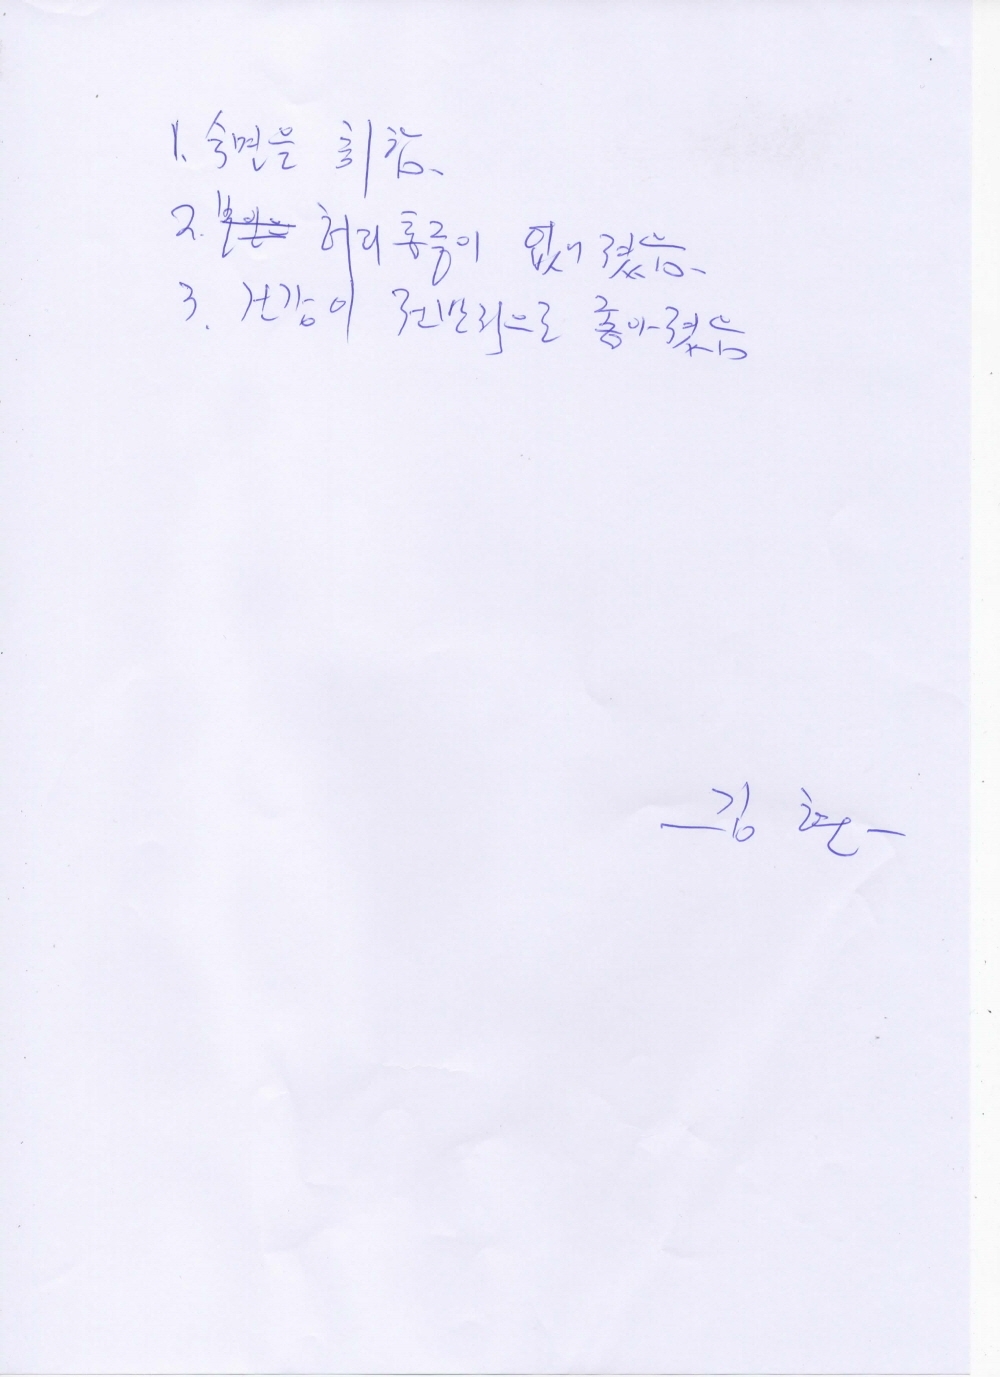 1. 숙면을 취함.
2. 허리통증이 없어졌음.
3. 건강이 전반적으로 좋아졌음
— 김 현 —